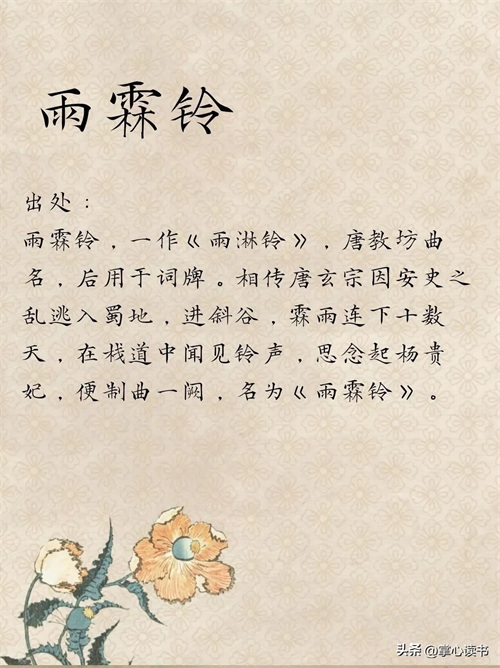 雨霖铃
出处：
雨霖铃，一作《雨淋铃》，唐教坊曲
名，后用于词牌。相传唐玄宗因安史之
乱逃入蜀地，进斜谷，霖雨连下十数
天，在栈道中闻见铃声，思念起杨贵
妃，便制曲一阙，名为《雨霖铃》。
头条@掌心读书